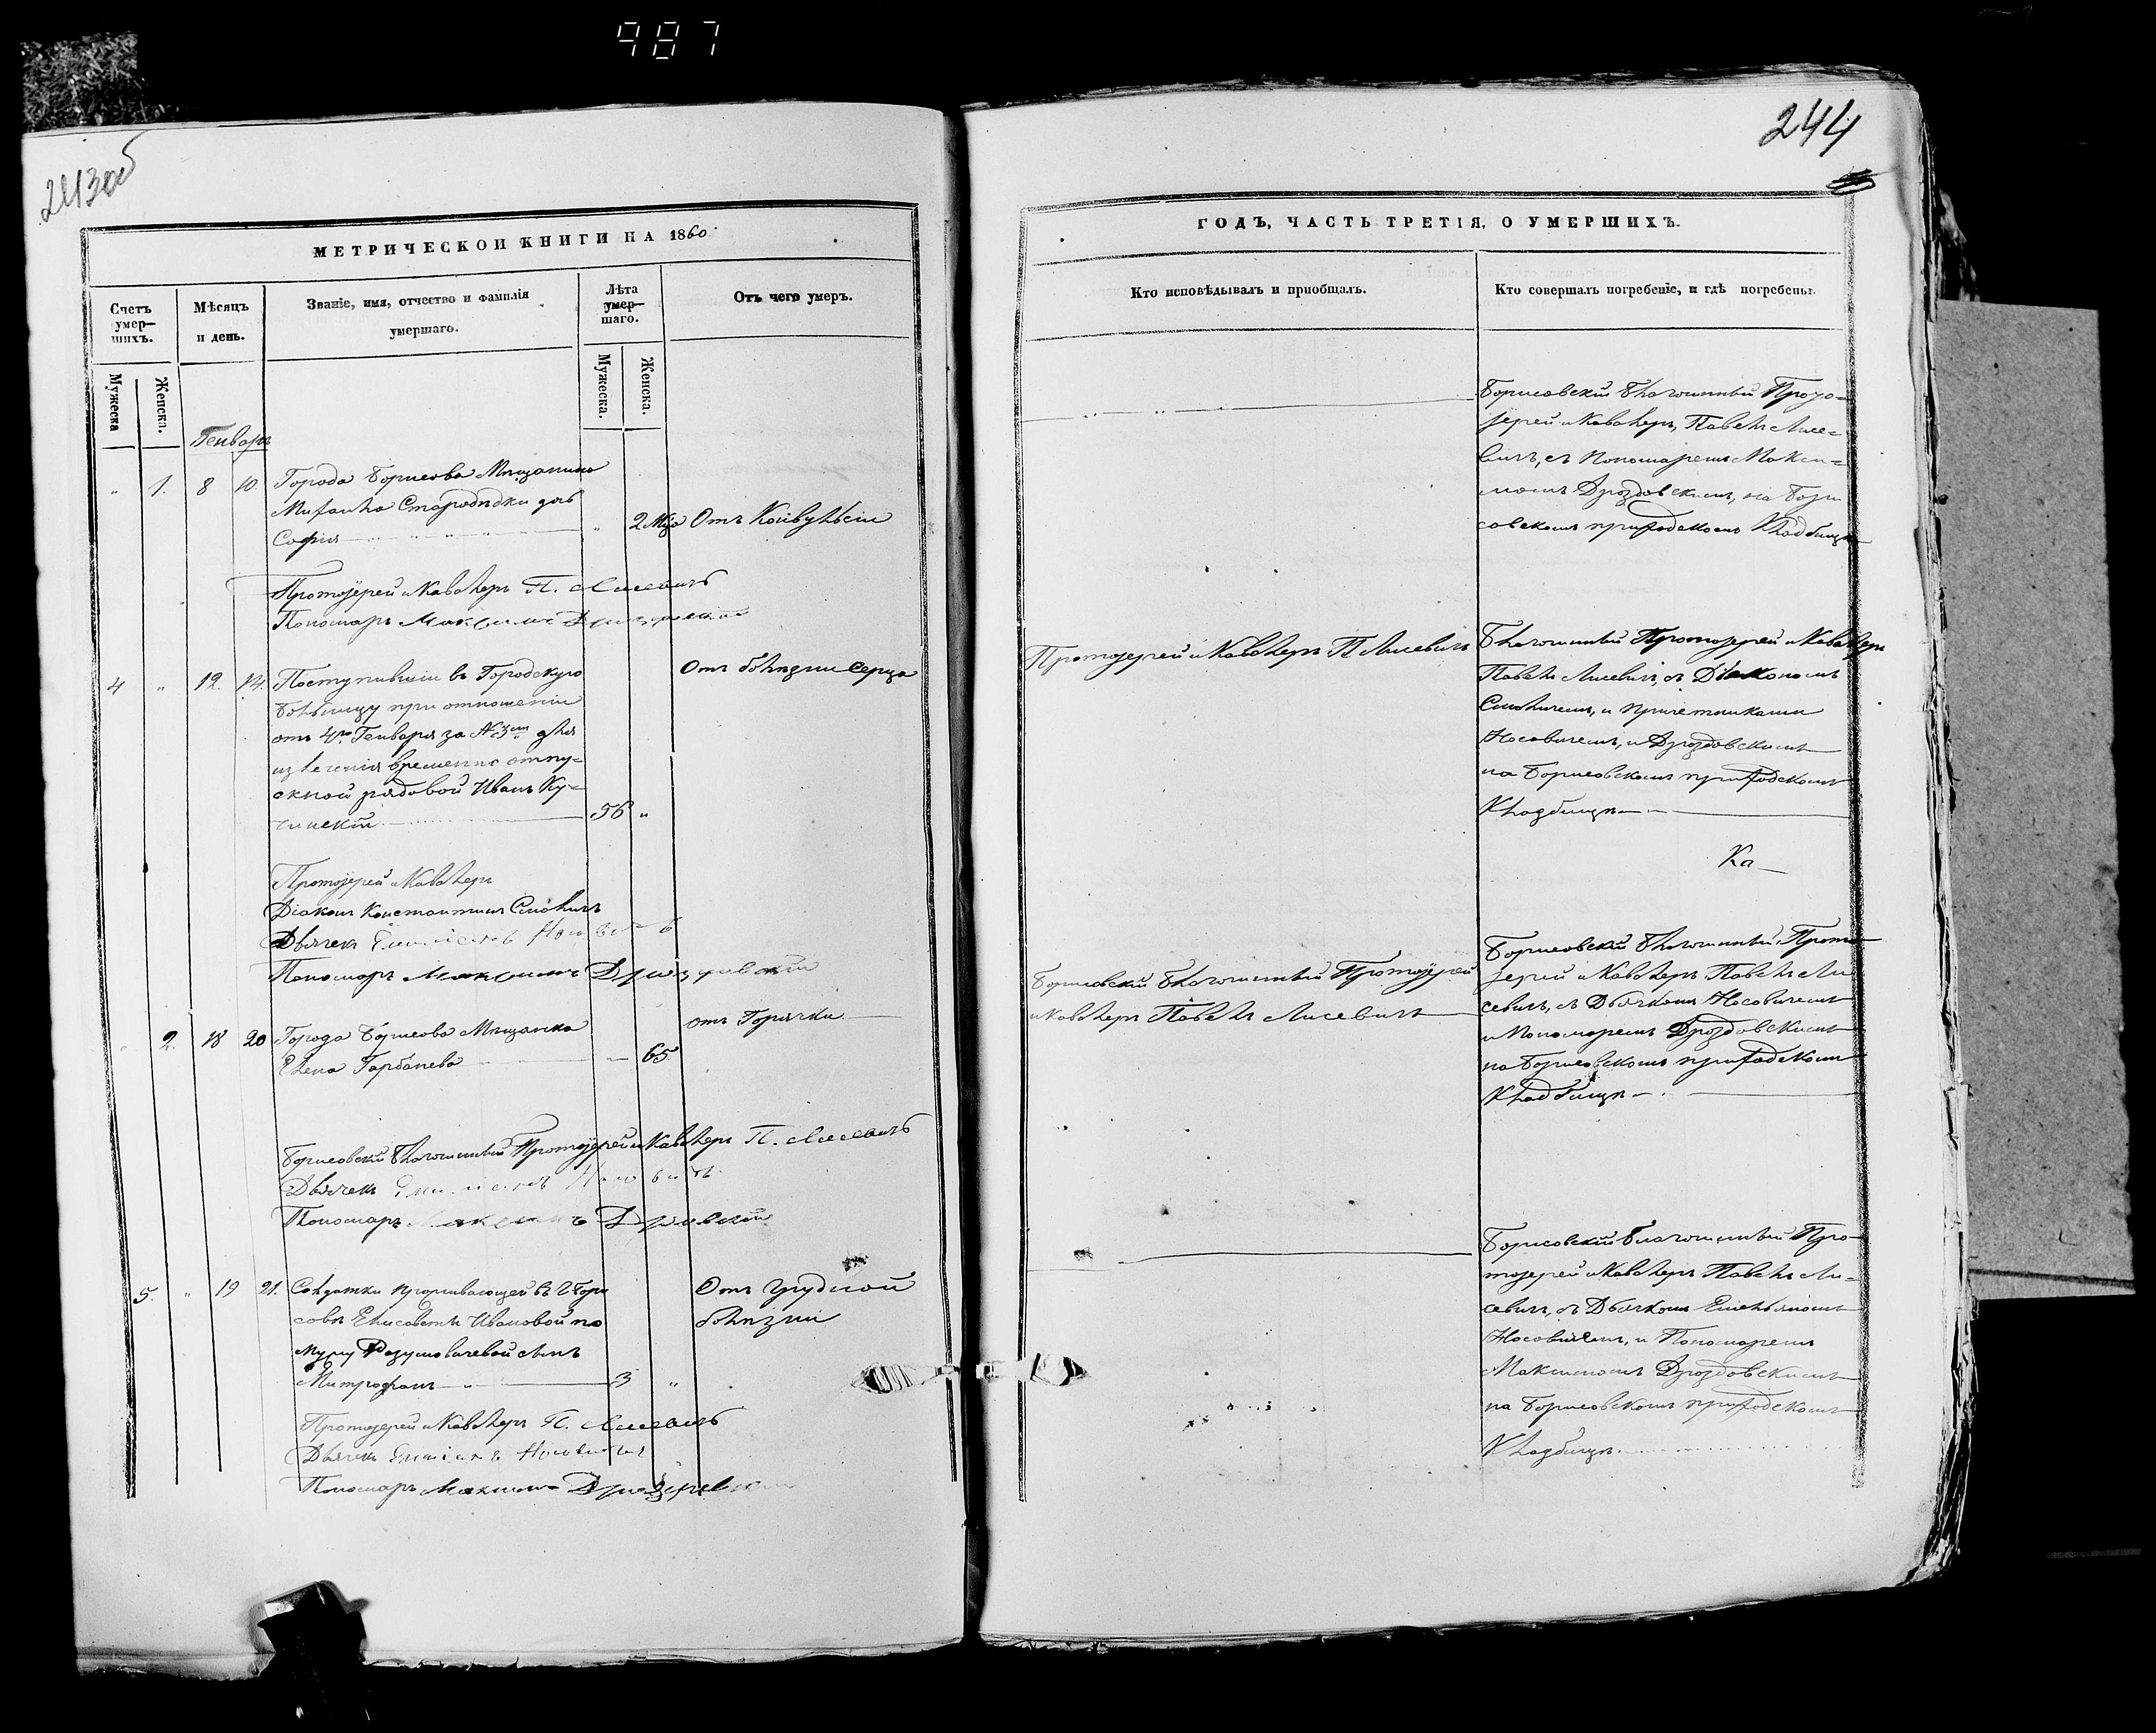 987
243об
МЕТРИЧЕСКОЙ КНИГИ НА 1860
Счетъ умер–шихъ.
Мѣсяцъ и день.
Званіе, имя, отчество и фамилія умершаго.
Лѣта умер–шаго.
Отъ чего умеръ.
Мужеска
Женска.
Мужеска.
Женска.
Генварь
" 1. 8 10. Города Борисова Мѣщанина
Михаила Стародѣдки дочь
София " 2 Мца Отъ Конвульсіи
Протоіерей и Кавалеръ П. Лисевичъ
Пономарь Максимъ Дроздовскій
4 " 12. 14. Поступившій въ Городскую Отъ болѣзни Серца
больницу при отношеніи
отъ 4го Генваря за №3мъ для
излеченія временно отпу=
скной рядовой Иванъ Ку=
чинскій 56 "
Протоіерей и Кавалеръ
Діаконъ Константинъ Смоличъ
Дьячекъ Носовичъ
Пономарь Максимъ Дроздовскій
" 2. 18 20 Города Борисова Мѣщанка отъ Горячки
Елена Горбачева 65
Борисовскій Благочинный Протоіерей и Кавалеръ П. Лисевичъ
Дьячекъ Носовичъ
Пономарь Максимъ Дроздовскій
5. " 19 21. Солдатки проживающей въ г Бори Отъ грудной
совѣ Елисаветы Ивановой по болѣзни
мужу Розумовичевой сынъ
Митрофанъ 3 "
Протоіерей и Кавалеръ П. Лисевичъ
Дьячекъ Носовичъ
Пономарь Максимъ Дроздовскій
244
ГОДЪ, ЧАСТЬ ТРЕТІЯ, О УМЕРШИХЪ.
Кто исповѣдывалъ и пріобщалъ.
Кто совершалъ погребеніе, и гдѣ погребены.
Борисовскій Благочинный Прото=
іерей и Кавалеръ, Павелъ Лисе=
вичъ, съ Пономаремъ Макси=
момъ Дроздовскимъ, на Бори
совскомъ приходскомъ Кладбищѣ
Протоіерей и Кавалеръ П Лисевичъ
Благочинный Протоіерей и Кавалеръ
Павелъ Лисевичъ, съ Діакономъ
Смоличемъ, и причетниками
Носовичемъ, и Дроздовскимъ
на Борисовскомъ приходскомъ
Кладбищѣ
Ка
Борисовскій Благочинный Протоіерей
и Кавалеръ Павелъ Лисевичъ
Борисовскій Благочинный, Прото
іерей и Кавалеръ Павелъ Ли
севичъ, съ Дьячкомъ Носовичемъ
и Пономаремъ Дроздовскимъ
на Борисовскомъ приходскомъ
Кладбищѣ
Борисовскій Благочинный Про
тоіерей и Кавалеръ Павелъ Ли=
севичъ, съ Дьячкомъ Емельяномъ
Носовичемъ, и Пономаремъ
Максимомъ Дроздовскимъ
на Борисовскомъ приходскомъ
Кладбищѣ